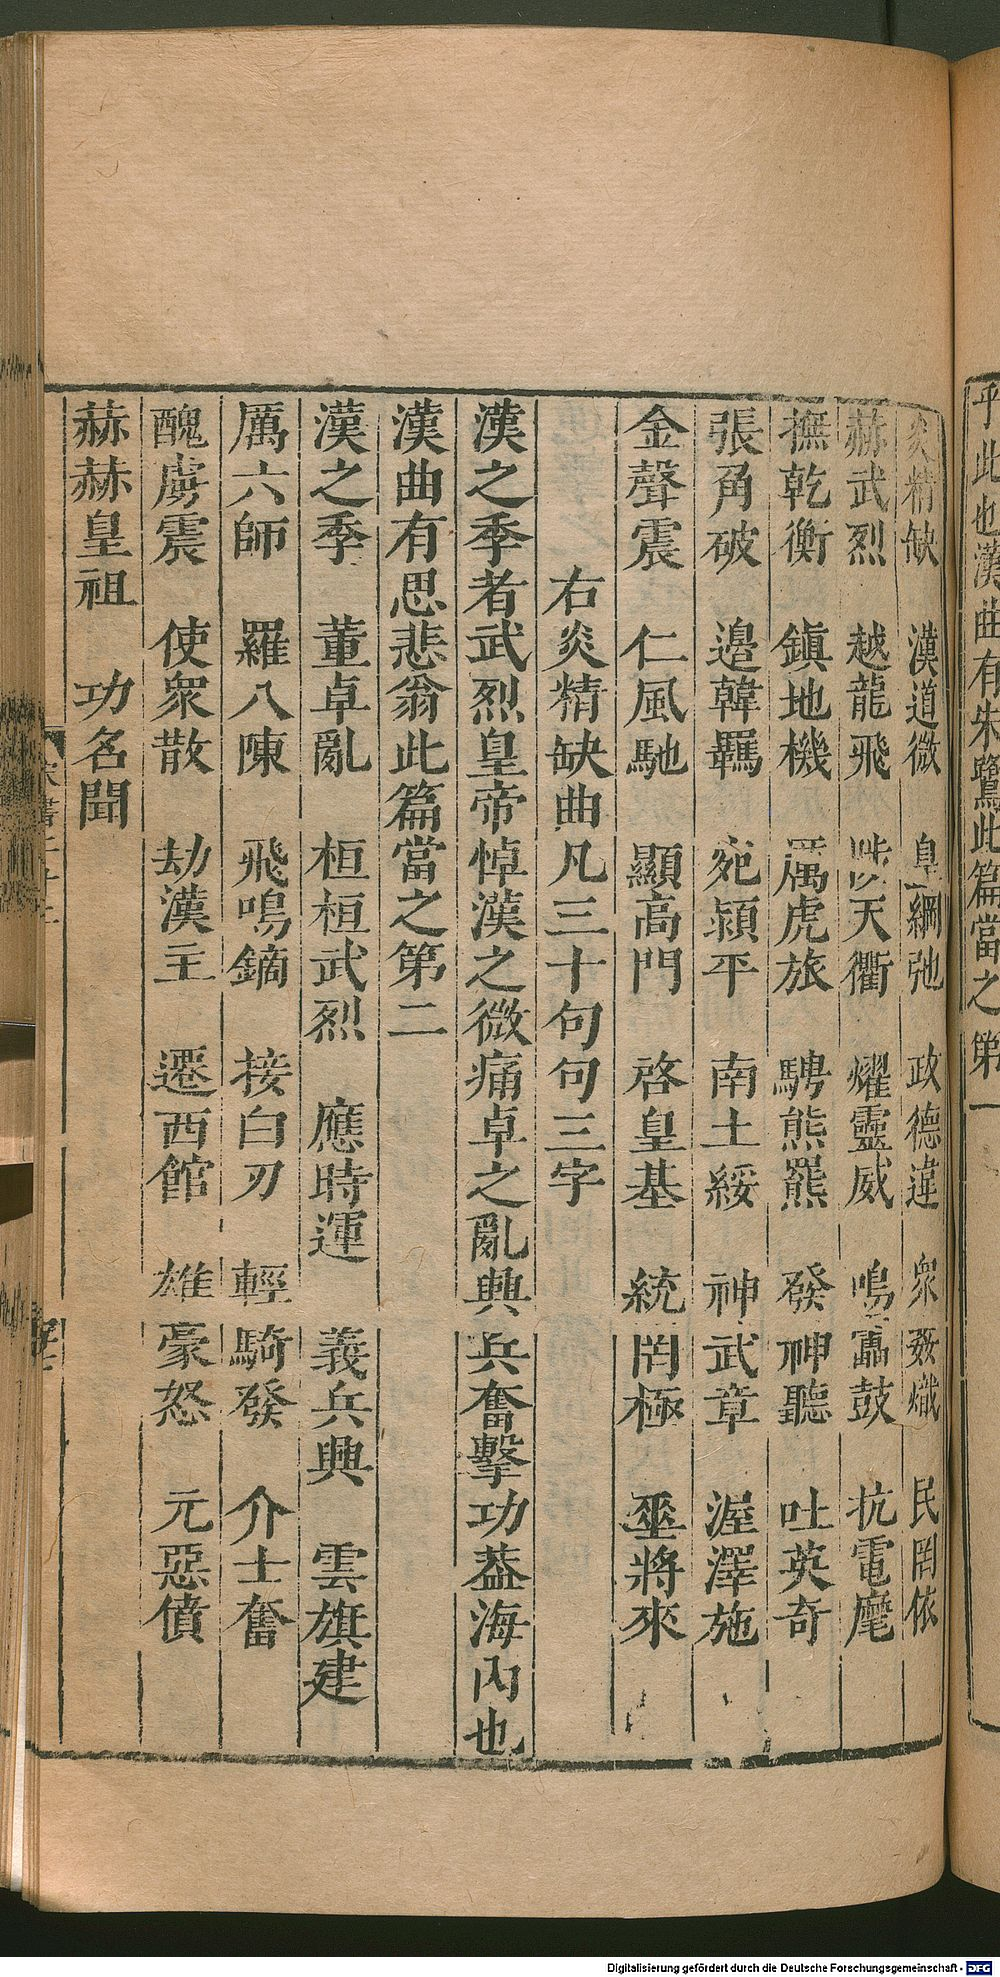 乎此也漢曲有朱鷺此篇當之第一
炎精缺　漢道微　皇綱弛　政德違　衆姦熾　民罔依
赫武烈　越龍飛　陟天衢　耀靈威　鳴鼓　抗電麾
撫乾衡　鎭地機　厲虎旅　騁熊羆　發神聽　吐英奇
張角破　邊韓羈　宛潁平　南土綏　神武章　渥澤施
金聲震　仁風馳　顯高門　啓皇基　統罔極　垂將來
右炎精缺曲凡三十句句三字
漢之季者武烈皇帝悼漢之微痛卓之亂興兵奮擊功葢海内也
漢曲有思悲翁此篇當之第二
漢之季　董卓亂　桓桓武烈　應時運　義兵興　雲旗建
厲六師　羅八陳　飛鳴鏑　接白刃　輕騎發　介士奮
醜虜震　使衆散　劫漢主　遷西館　雄豪怒　元惡僨
赫赫皇祖　功名聞
宋書二十二
Digitalisierung gefördert durch die Deutsche Forschungsgemeinschaft - DFG